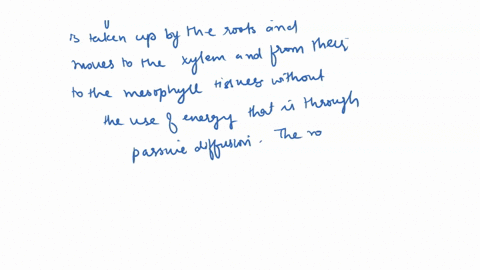 is taken up by the roots and
moves to the xylem and from their
to the mesophyll tissues without
the use of energy that is through
passive diffusion. The ro